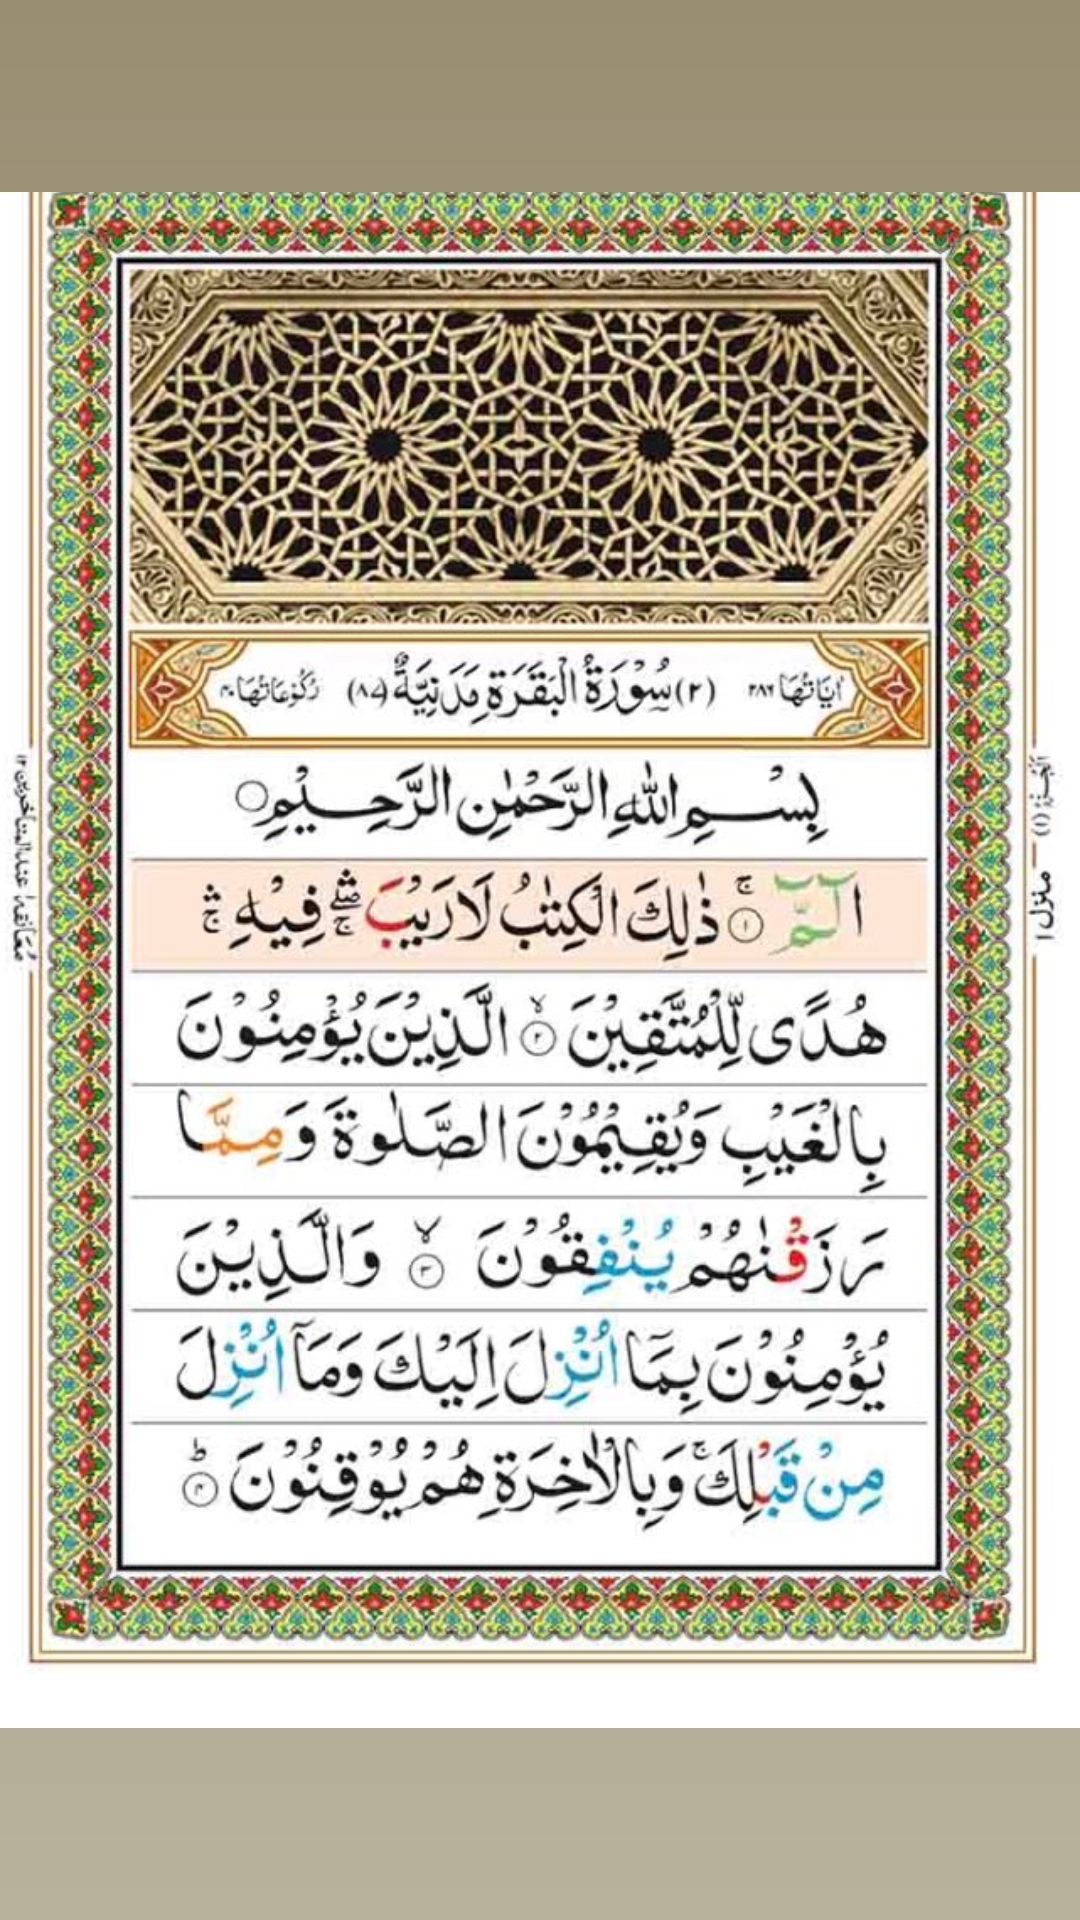 اٰيَاتُهَا ٢٨٦ (٢) سُوْرَةُ الْبَقَرَةِ مَدَنِيَّةٌ (٨٧) رُكُوْعَاتُهَا ٤٠
بِسْمِ اللّٰهِ الرَّحْمٰنِ الرَّحِيْمِ ○
الٓمّٓ ۚ ١ ذٰلِكَ الْكِتٰبُ لَا رَيْبَ ۛۖۚ فِيْهِ ۛۚ
هُدًى لِّلْمُتَّقِيْنَ ۙ ٢ الَّذِيْنَ يُؤْمِنُوْنَ
بِالْغَيْبِ وَيُقِيْمُوْنَ الصَّلٰوةَ وَمِمَّا
رَزَقْنٰهُمْ يُنْفِقُوْنَ ۙ ٣ وَالَّذِيْنَ
يُؤْمِنُوْنَ بِمَآ اُنْزِلَ اِلَيْكَ وَمَآ اُنْزِلَ
مِنْ قَبْلِكَ ۚ وَبِالْاٰخِرَةِ هُمْ يُوْقِنُوْنَ ؕ ٤
اَلْجُزْءُ (١)
منزل ١
مُعَانقة ١ عند المتأخرين ١٢